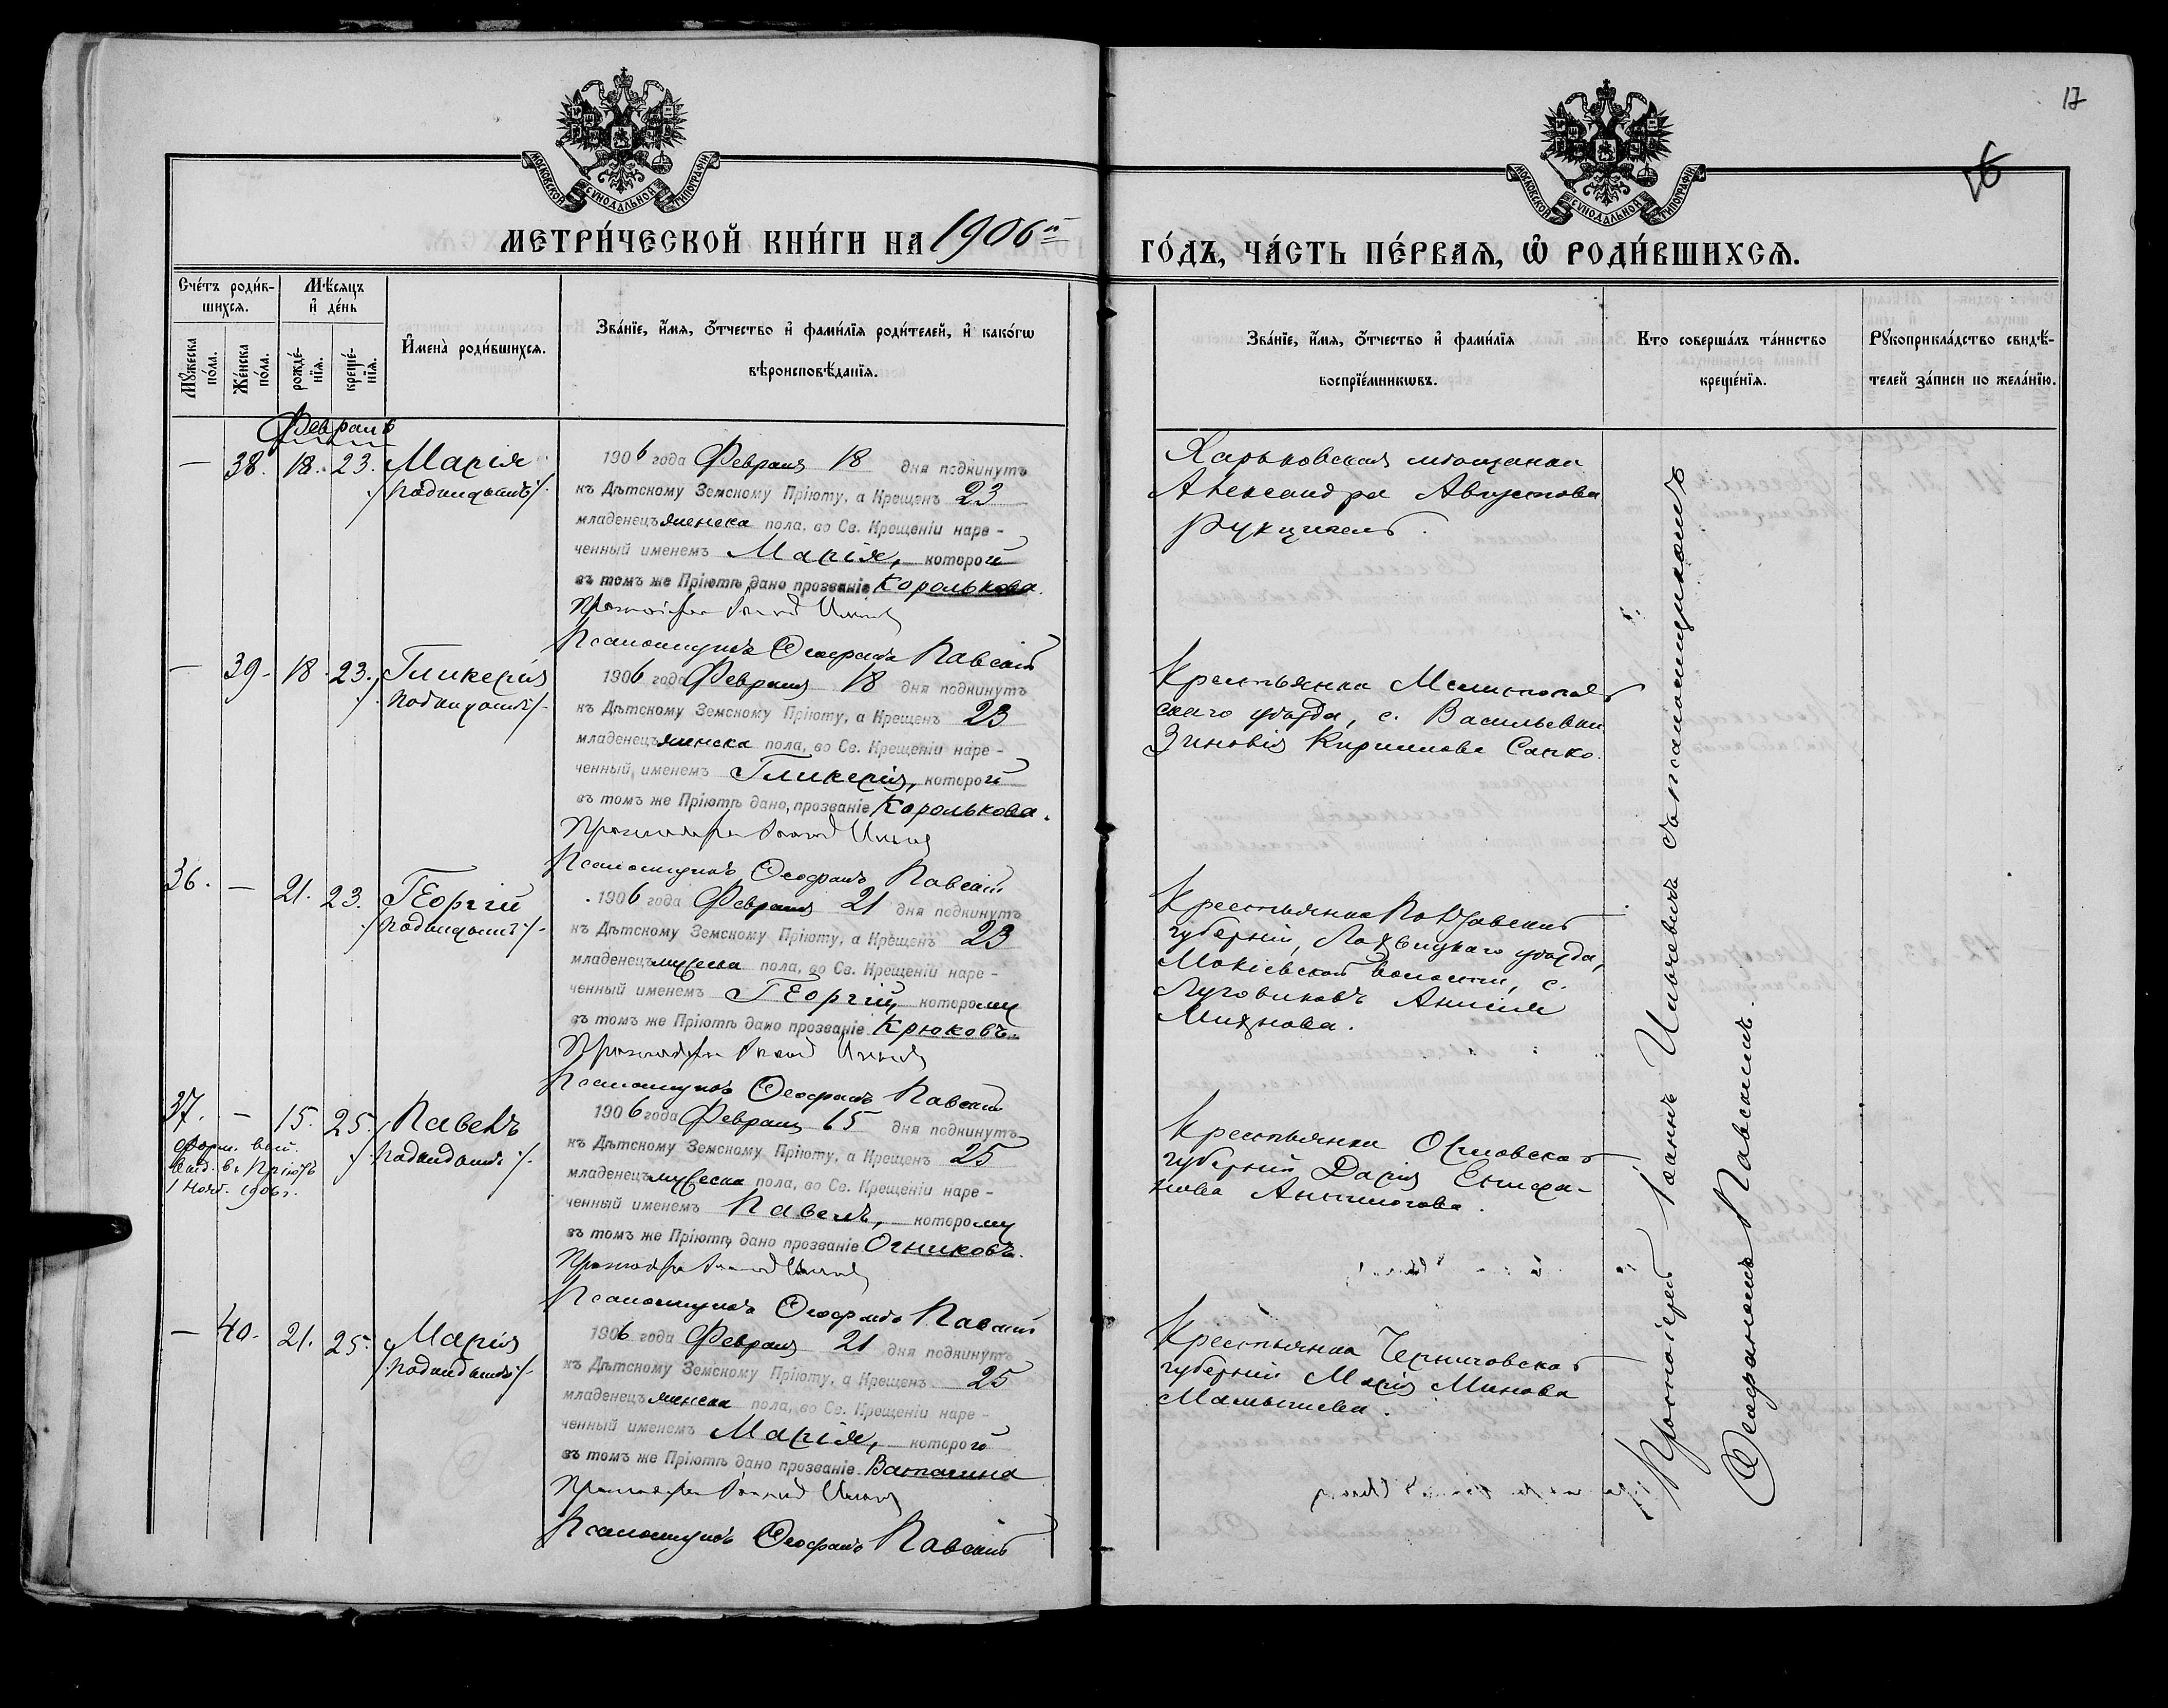 17
16
МОСКОВСКОЙ СѴНОДАЛЬНОЙ ТИПОГРАФІИ
МОСКОВСКОЙ СѴНОДАЛЬНОЙ ТИПОГРАФІИ
МЕТРИ́ЧЕСКОЙ КНИ́ГИ НА 1906й
ГО́ДЪ, ЧА́СТЬ ПЕ́РВАЯ, Ѽ РОДИ́ВШИХСЯ.
Сче́тъ роди́в-
шихся.
Мꙋжеска по́ла.
Же́нска по́ла.
Мѣ́сяцъ
и҆ де́нь
рожде́-
нїя.
креще́-
нїя.
И҆мена̀ роди́вшихся.
Зва́нїе, и҆́мя, ѻ҆́тчество и҆ фами́лїя роди́телей, и҆ како́гѡ
вѣроисповѣ́данїя.
Зва́нїе, и҆́мя, ѻ҆́тчество и҆ фами́лїя
воспрїе́мникѡвъ.
Кто соверша́лъ та́инство
креще́нїя.
Рꙋкоприкла́дство свидѣ́-
телей за́писи по жела́нїю.
Февраль
— 38. 18. 23. Марія
/подкидышъ/.
1906 года Февраля 18 дня подкинутъ
къ Дѣтскому Земскому Пріюту, а Крещенъ 23
младенецъ женска пола, во Св. Крещеніи наре-
ченный именемъ Марія, которой
въ томъ же Пріютѣ дано прозваніе Королькова.
Протоіерей Іоаннъ Ильичъ
Псаломщикъ Ѳеофанъ Павскій
Харьковская мѣщанка
Александра Августова
— 39. 18. 23. Гликерія
/подкидышъ/.
1906 года Февраля 18 дня подкинутъ
къ Дѣтскому Земскому Пріюту, а Крещенъ 23
младенецъ женска пола, во Св. Крещеніи наре-
ченный именемъ Гликерія, которой
въ томъ же Пріютѣ дано прозваніе Королькова.
Протоіерей Іоаннъ
Псаломщикъ Ѳеофанъ Павскій
Крестьянка Мелитополь
скаго уѣзда, с. Васильевки
Зиновія Кириллова Сапко.
36. — 21. 23. Георгій
/подкидышъ/.
1906 года Февраля 21 дня подкинутъ
къ Дѣтскому Земскому Пріюту, а Крещенъ 23
младенецъ мужеска пола, во Св. Крещеніи наре-
ченный именемъ Георгій, которому
въ томъ же Пріютѣ дано прозваніе Крюковъ.
Протоіерей Іоаннъ
Псаломщикъ Ѳеофанъ Павскій
Крестьянка Полтавской
губерніи, Лохвицкаго уѣзда,
Мокіевской волости, с.
Луговиковъ Анисія
Михнова.
37. — 15. 25. Павелъ
/подкидышъ/.
въ Пріютъ
1 Нояб. 1906 г.
1906 года Февраля 15 дня подкинутъ
къ Дѣтскому Земскому Пріюту, а Крещенъ 25
младенецъ мужеска пола, во Св. Крещеніи наре-
ченный именемъ Павелъ, которому
въ томъ же Пріютѣ дано прозваніе Огниковъ.
Протоіерей Іоаннъ
Псаломщикъ Ѳеофанъ Павскій
Крестьянка Орловской
губерніи Дарія Епифа-
нова Антипогова.
— 40. 21. 25. Марія
/подкидышъ/.
1906 года Февраля 21 дня подкинутъ
къ Дѣтскому Земскому Пріюту, а Крещенъ 25
младенецъ женска пола, во Св. Крещеніи наре-
ченный именемъ Марія, которой
въ томъ же Пріютѣ дано прозваніе Ватагина
Протоіерей Іоаннъ
Псаломщикъ Ѳеофанъ Павскій
Крестьянка Черниговской
губерніи Марія Минова
Малышева.
Протоіерей Іоаннъ Ильичевичъ съ псаломщикомъ
Ѳеофаномъ Павскимъ.